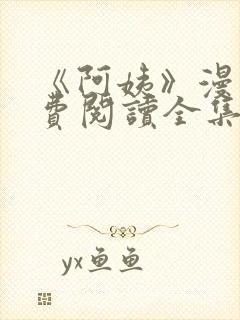 《阿姨》漫
費閱讀全集
yx鱼鱼